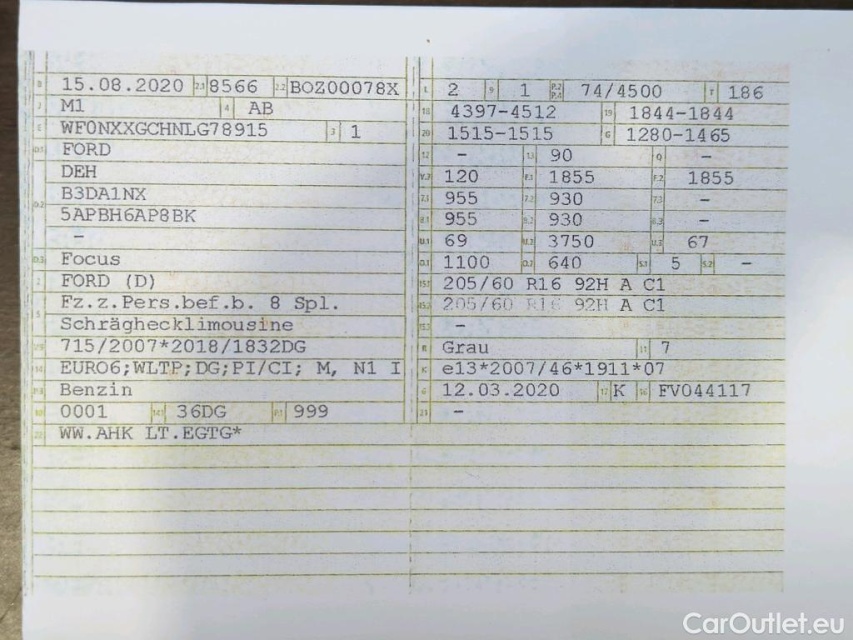 B 15.08.2020 2.1 8566 2.2 BOZ00078X
J M1 4 AB
E WF0NXXGCHNLG78915 3 1
D.1 FORD
DEH
D.2 B3DA1NX
5APBH6AP8BK
-
D.3 Focus
2 FORD (D)
5 Fz.z.Pers.bef.b. 8 Spl.
Schräghecklimousine
V.9 715/2007*2018/1832DG
14 EURO6;WLTP;DG;PI/CI; M, N1 I
P.3 Benzin
10 0001 14.1 36DG P.1 999
22 WW.AHK LT.EGTG*
L 2 9 1 P.2 P.4 74/4500 T 186
18 4397-4512 19 1844-1844
20 1515-1515 G 1280-1465
12 - 13 90 Q -
V.7 120 F.1 1855 F.2 1855
7.1 955 7.2 930 7.3 -
8.1 955 8.2 930 8.3 -
U.1 69 U.2 3750 U.3 67
O.1 1100 O.2 640 S.1 5 S.2 -
15.1 205/60 R16 92H A C1
15.2 205/60 R16 92H A C1
15.3 -
R Grau 11 7
K e13*2007/46*1911*07
6 12.03.2020 17 K 16 FV044117
21 -
CarOutlet.eu